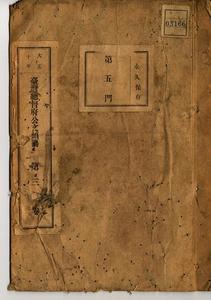 永久保存
第五門
大正
十年
臺灣總督府公文類纂
第三
卷
03166